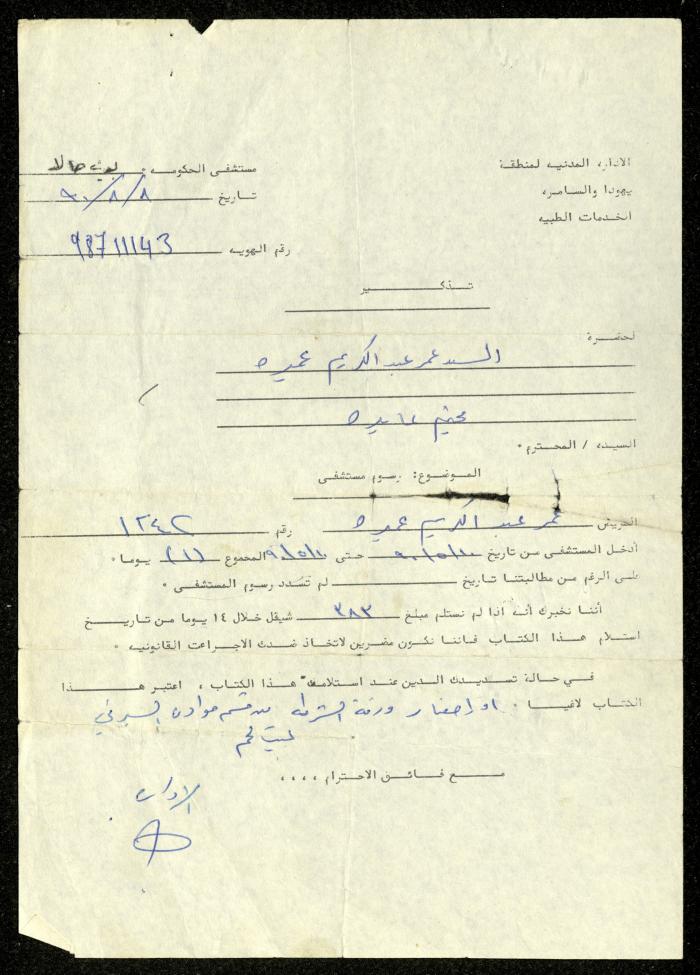 الادارة المدنيه لمنطقة
يهودا والسامره
الخدمات الطبيه
مستشفى الحكومه : بيت جالا
تاريخ ٩٠/٨/٨
رقم الهويه 98711143
تذكير
لحضرة
السيد عمر عبد الكريم عميره
مخيم عايده
السيده / المحترم *
الموضوع: رسوم مستشفى
المريض عمر عبد الكريم عميره رقم ١٢٤٢
أدخل المستشفى من تاريخ ٩٠/٥/١٠ حتى ٩٠/٥/١٠ المجموع (١) يوما *
على الرغم من مطالبتنا تاريخ لم تسدد رسوم المستشفى *
أننا نخبرك أنه اذا لم نستلم مبلغ ٣٨٣ شيقل خلال ١٤ يوما من تاريخ
استلام هذا الكتاب فاننا نكون مضرين لاتخاذ ضدك الاجراءت القانونيه *
في حالة تسديدك الدين عند استلامك هذا الكتاب ، اعتبر هذا
الكتاب لاغيا * او احضار ورقة الشرطه من قسم حوادث السير في
بيت لحم
مع فائق الاحترام ،،،،
الاداره